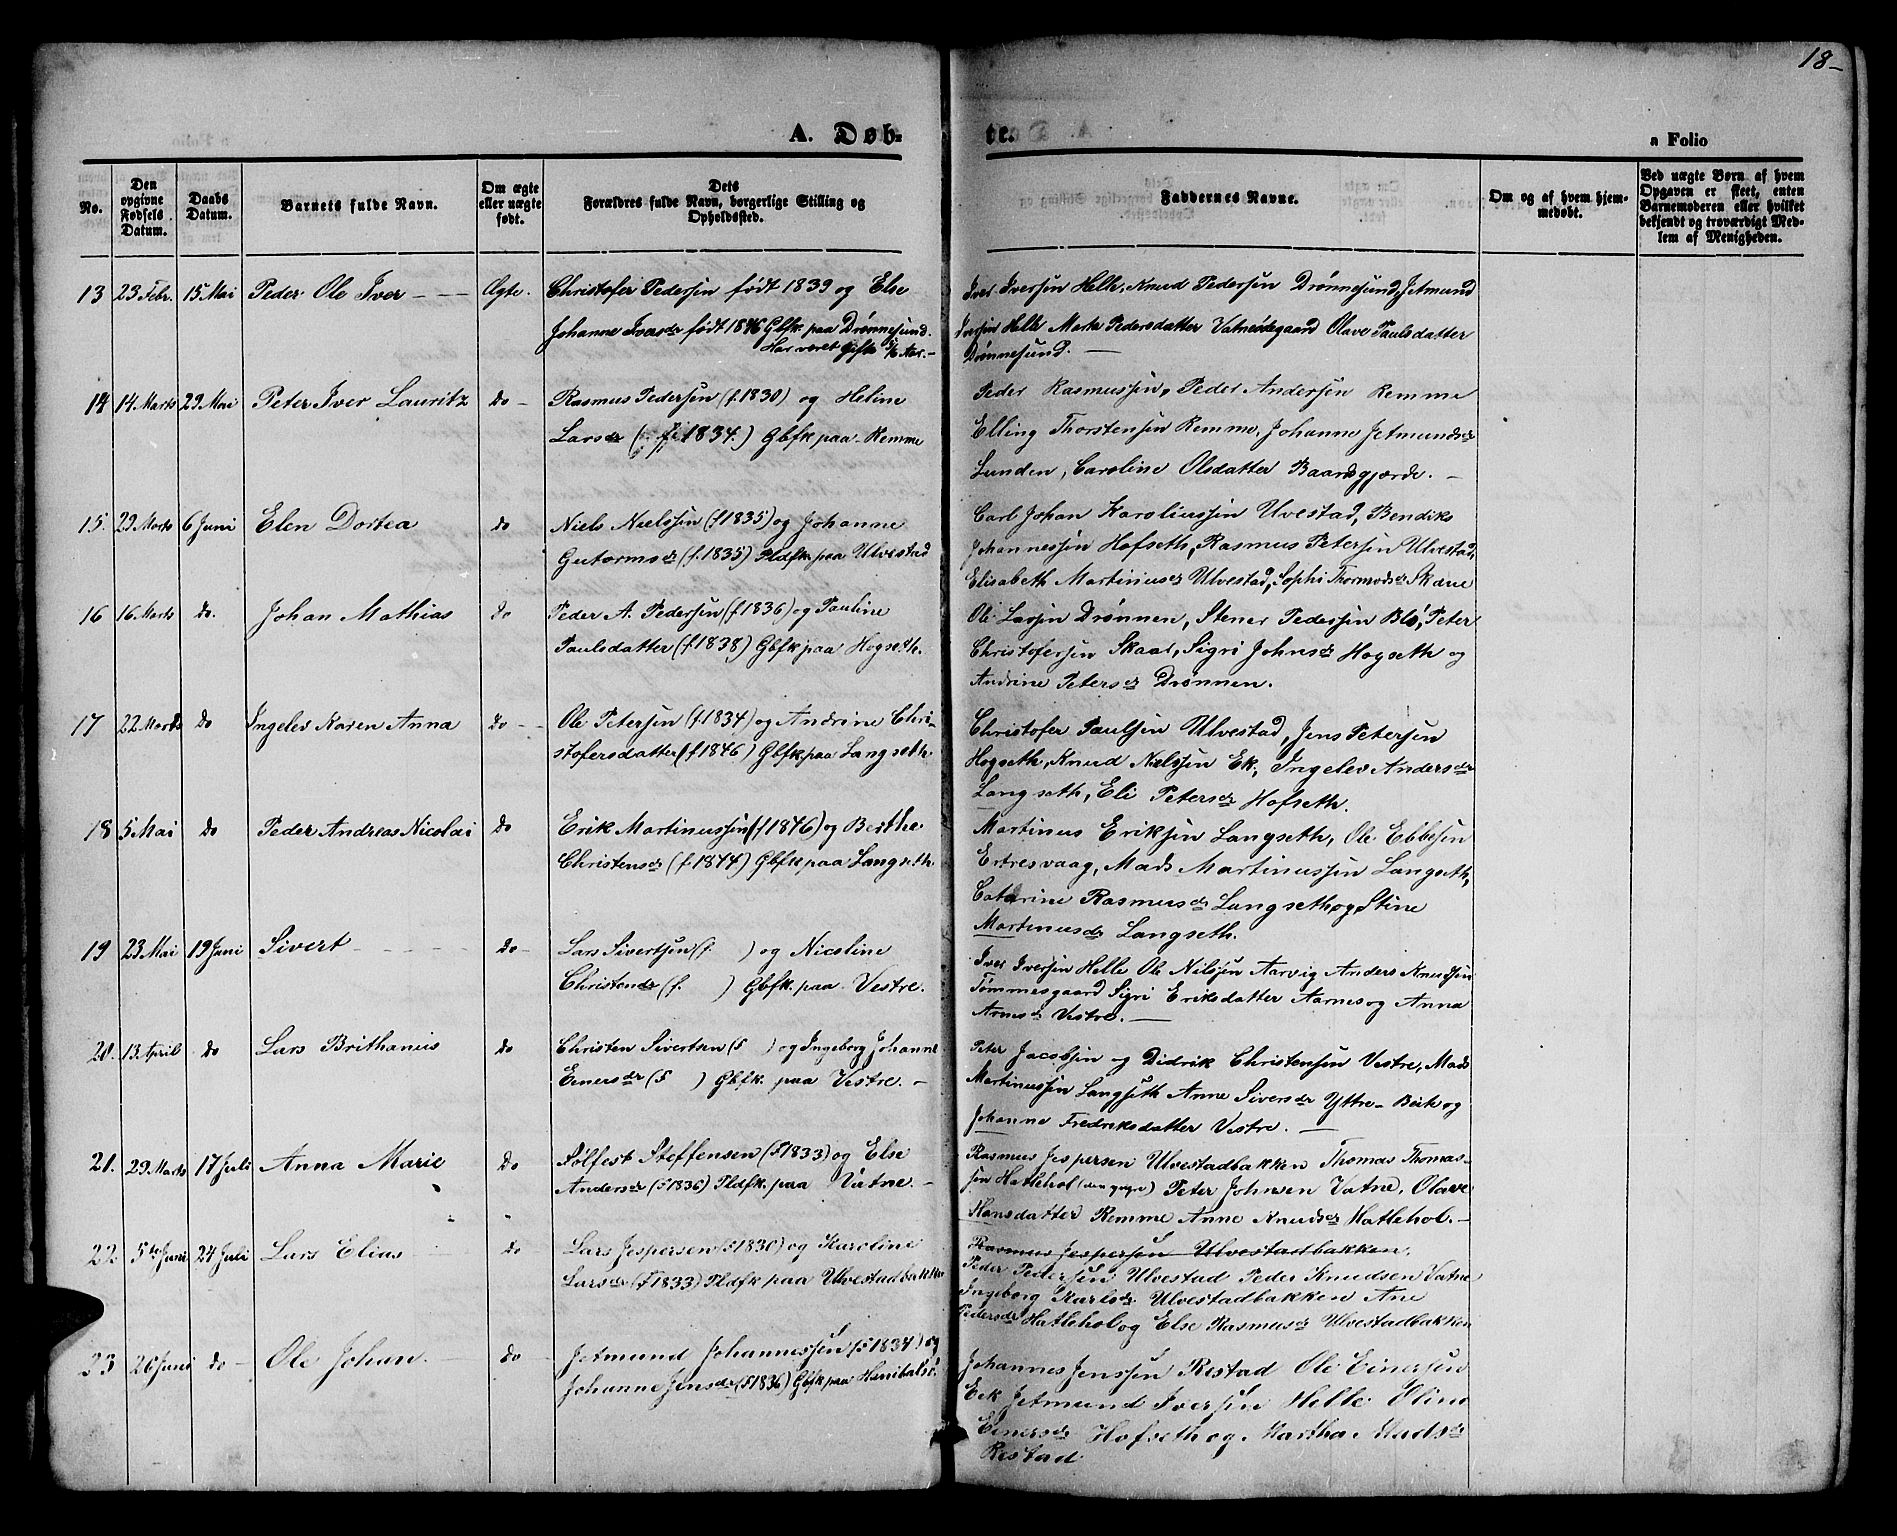 18-
A. Døb-
te.
a Folio
No.
Den opgivne Fødsels Datum.
Daabs Datum.
Barnets fulde Navn.
Om ægte eller uægte født.
Dets Forældres fulde Navn, borgerlige Stilling og Opholdssted.
Faddernes Navne.
Om og af hvem hjemmedøbt.
Ved uægte Børn af hvem Opgaven er skeet, enten Barnemoderen eller hvilket bekjendt og troværdigt Medlem af Menigheden.
13 23 Febr. 15 Mai Peder Ole Iver - - Ægte. Christofer Pedersen født 1839 og Else
Johanne Iversdr født 1846 Gbfk paa Drønnesund.
Har været Gifte Aar. -
Iver Iversen Helle, Knud Pedersen Drønnesund, Jetmund
Iversen Helle Marte Pedersdatter Vatneødegaard Olave Paulsdatter
Drønnesund. -
14 14 Marts 29 Mai Peter Iver Lauritz Do - Rasmus Pedersen (f. 1830) og Heline
Larsdr (f. 1834.) Gbfk paa Remme
Peder Rasmussen, Peder Andersen Remme
Elling Thorstensen Remme, Johanne Jetmundsdr
Lunden, Caroline Olsdatter Baardsgjærde. -
15. 29 Marts 6 Juni Elen Dortea do Niels Nielssen (f 1835) og Johanne
Gutormsdr (f. 1835) Pldfk paa Ulvestad
Carl Johan Karoliussen Ulvestad, Bendiks
Johannessen Hofseth, Rasmus Petersen Ulvestad,
Elisabeth Martinusdr Ulvestad, Sophi Thormodsdr Skaue
16 16 Marts do. Johan Mathias do Peder A. Pedersen (f. 1836) og Pauline
Paulsdatter (f. 1838) Gbfk paa Hogseth.
Ole Larsen Drønnen, Stener Pedersen Blö, Peter
Christofersen Skaar, Sigri Johnsdr Hogseth og
Andrine Petersdr Drønnen.
17 22 Marts do Ingelev Karen Anna do - - Ole Petersen (f. 1834) og Andrine Chri-
stofersdatter (f 1846) Gbfk paa Langseth.
Christofer Paulsen Ulvestad, Jens Petersen
Hogseth, Knud Nielssen Ek, Ingelev Andersdr
Langseth, Eli Petersdr Hofseth.
18 5 Mai do Peder Andreas Nicolai do Erik Martinussen (f 1846) og Berthe
Christensdr (f. 1844) Gbfk paa Langseth.
Martinus Eriksen Langseth, Ole Ebbesen
Ertresvaag, Mads Martinussen Langseth,
Catarine Rasmusdr Langseth og Stine
Martinusdr Langseth.
19 23 Mai 19 Juni Sivert - - - do - Lars Sivertsen (f. ) og Nicoline
Christensdr (f. ) Gbfk. paa Vestre.
Iver Iversen Helle Ole Nilsen Aarvig Anders Knudsen
Tommesgaard Sigri Eriksdatter Aarnes og Anna
Arnesdr Vestre. -
20. 13 April do Lars Brithanus do Christen Sivertsen (f ) og Ingeborg Johanne
Einersdr (f ) Gbfk. paa Vestre. -
Peter Jacobsen og Didrik Christensen Vestre, Mads
Martinussen Langseth Anne Siversdr Yttre-Beit og
Johanne Fredriksdatter Vestre. -
21. 29 Marts 17 Juli Anna Marie Do Sølfest Steffensen (f 1833) og Else
Andersdr (f 1836) Pldfk. paa Vatne. -
Rasmus Jespersen Ulvestadbakken Thomas Thomas-
sen Hatlehol (den yngre) Peter Johnsen Vatne, Olave
Hansdatter Remme Anne Knudsdr Hatlehol. -
22. 5te Juni 24 Juli Lars Elias do Lars Jespersen (f 1830) og Karoline
Larsdr (f 1833) Pldfk paa Ulvestadbakke
Rasmus Jespersen Ulvestadbakken.
Peder Pedersen Ulvestad Peder Knudsen Vatne
Ingeborg Karlsdr Ulvestadbakken Ane
Pedersdr Hatlehol og Else Rasmusdr Ulvestadbakken
23 26 Juni do - Ole Johan. do Jetmund Johannessen (f 1834) og
Johanne Jensdr (f 1836) Gbfk paa Hanibalsö.
Johannes Jenssen Restad Ole Einersen
Eek Jetmund Iversen Helle Oline
Einersdr Hofseth og Martha Madsdr
Restad